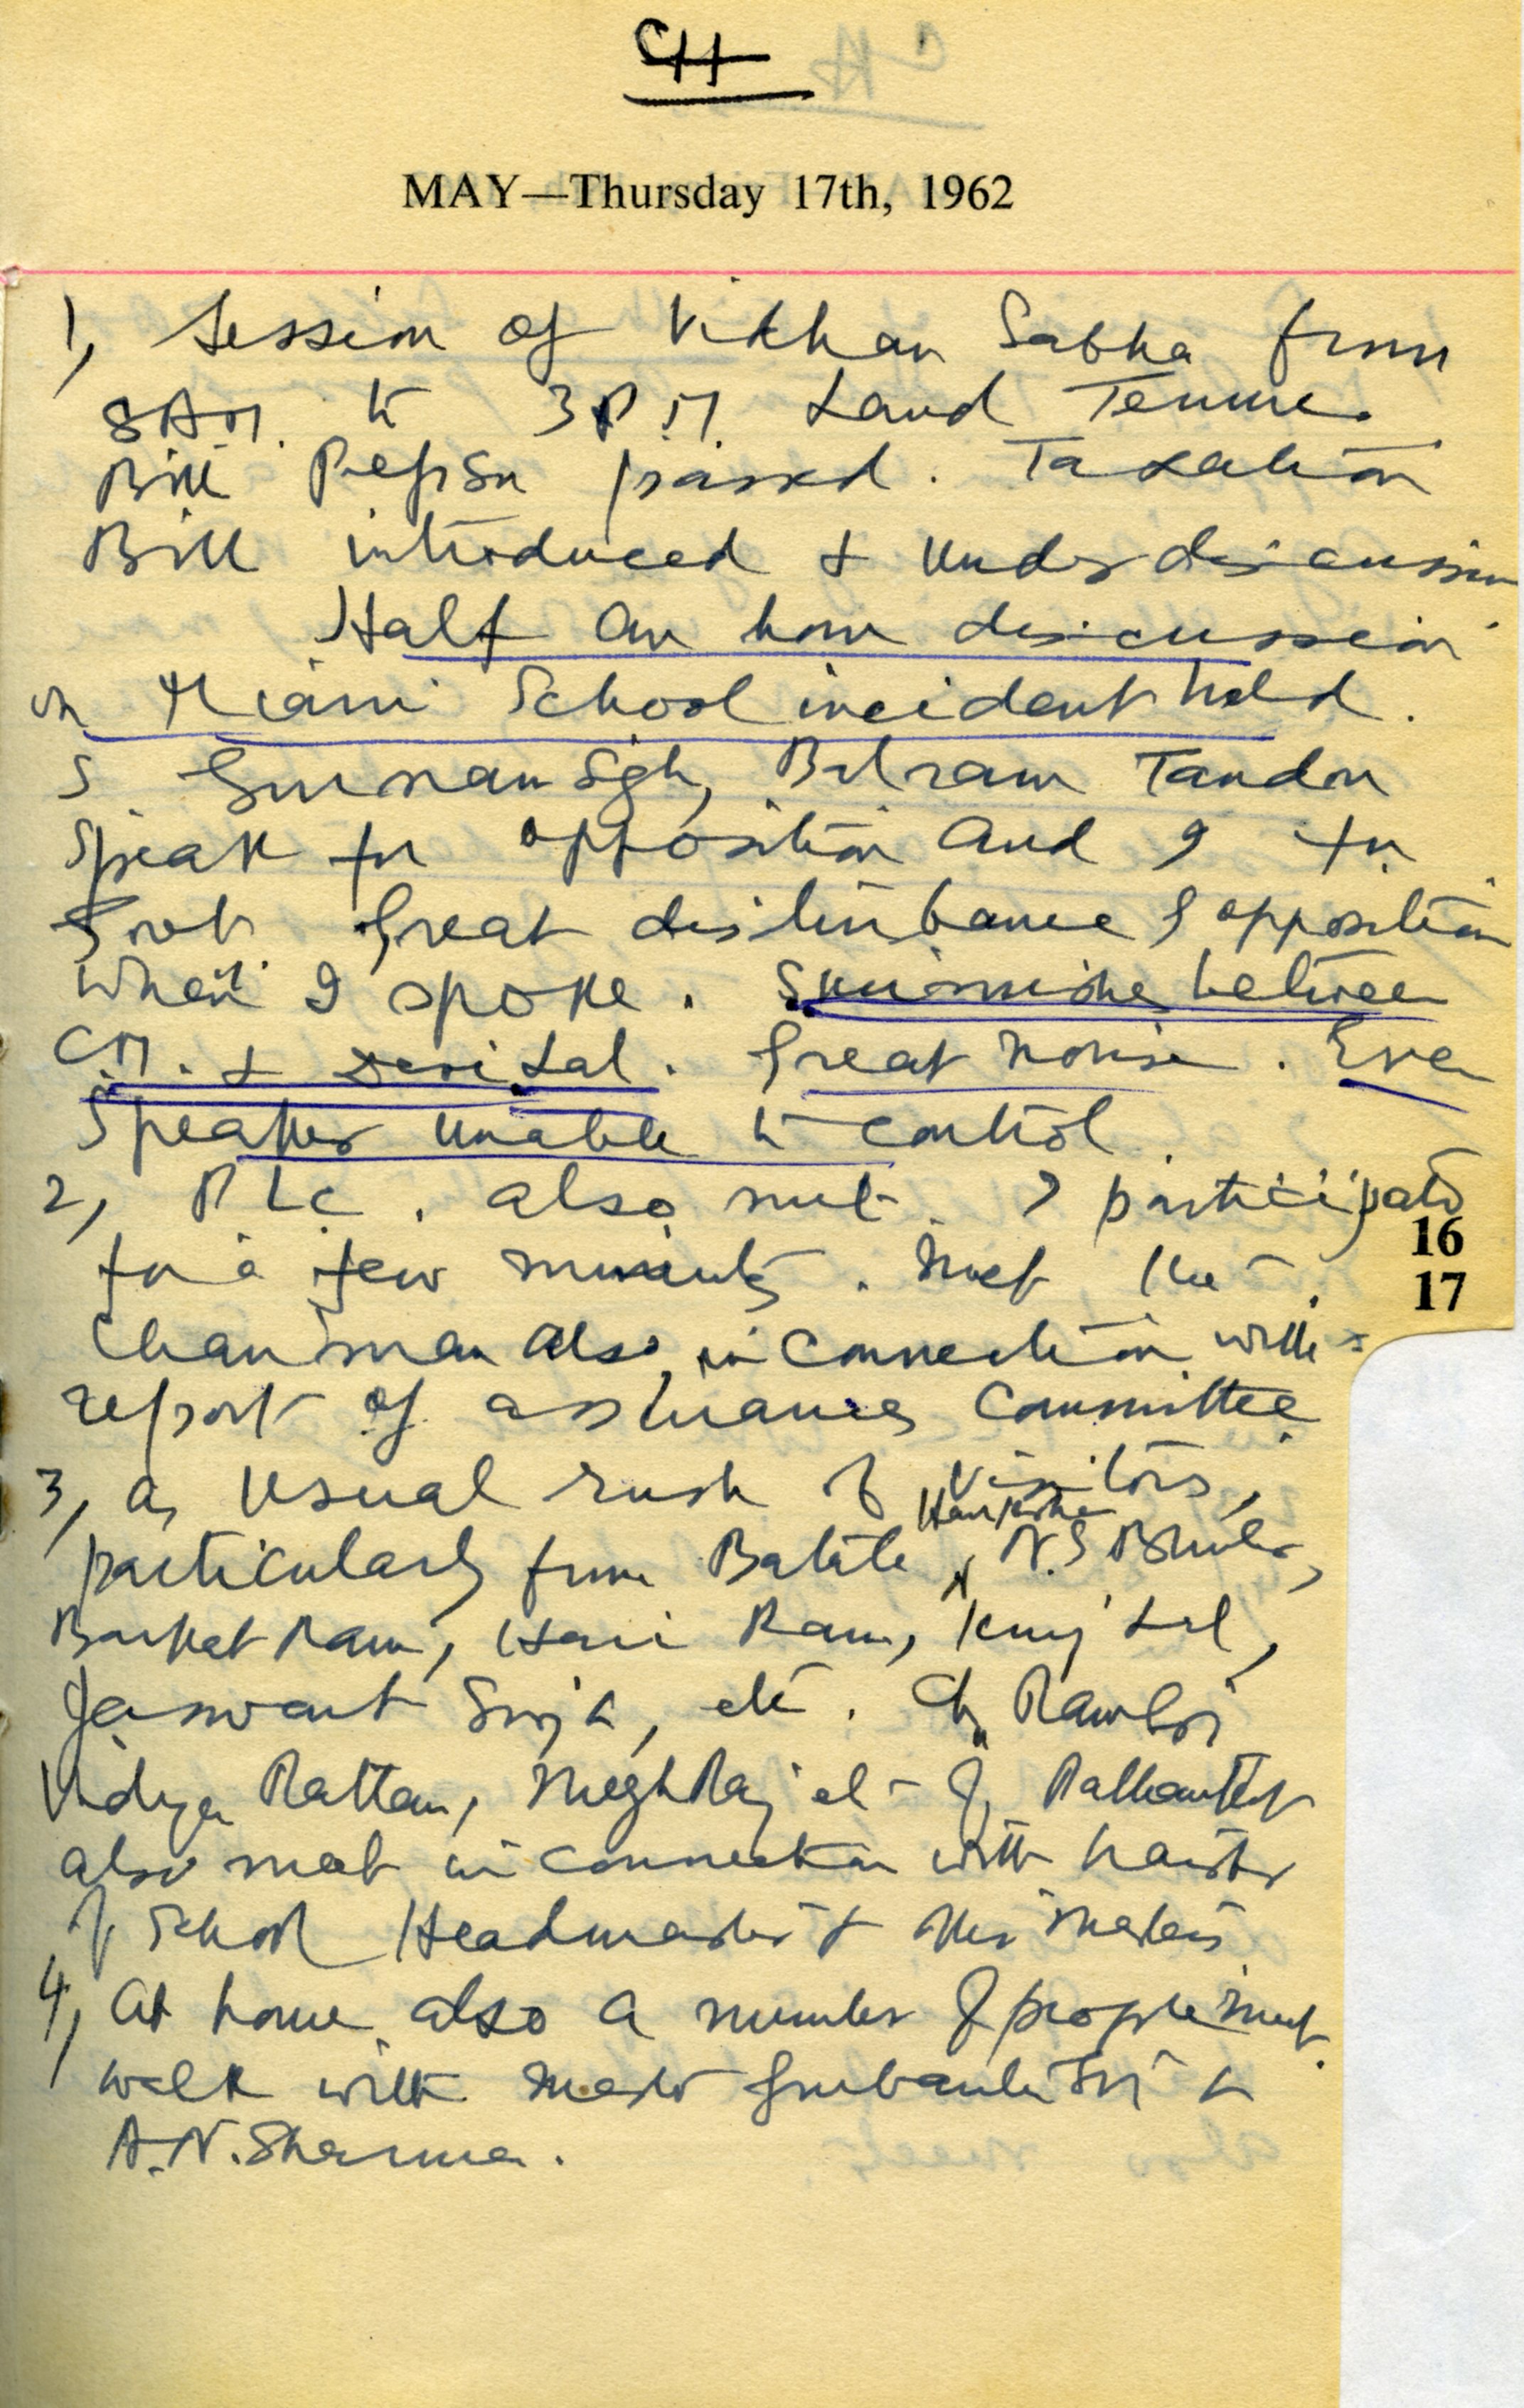 CH
MAY—Thursday 17th, 1962
1, Session of Vidhan Sabha from
8 AM. to 3 P.M. Land Tenure
Bill Pepsu passed. Taxation
Bill introduced & under discussion
Half an hour discussion
on Miani School incident held.
S. Gurnam Sgh, Balram Tandon
speak for opposition and I for
Govt. Great disturbance of opposition
when I spoke. Skirmishe between
C.M. & Devi Lal. Great noise. Even
Speaker unable to control.
2, P.L.C. also met. I participated
for a few minutes. Met the
Chairman also, in connection with
report of assurances Committee
3, as usual rush of visitors,
particularly from Batala, N.S.
Barkat Ram, Hari Ram, Kunj Lal,
Jaswant Singh, etc. Ch.
Vidya Rattan, Megh Raj etc of
also met in connection with
of School Headmaster & other
4, At home also a number of people met.
Walk with Master Gurbanta Singh &
A.N. Sharma.
16
17